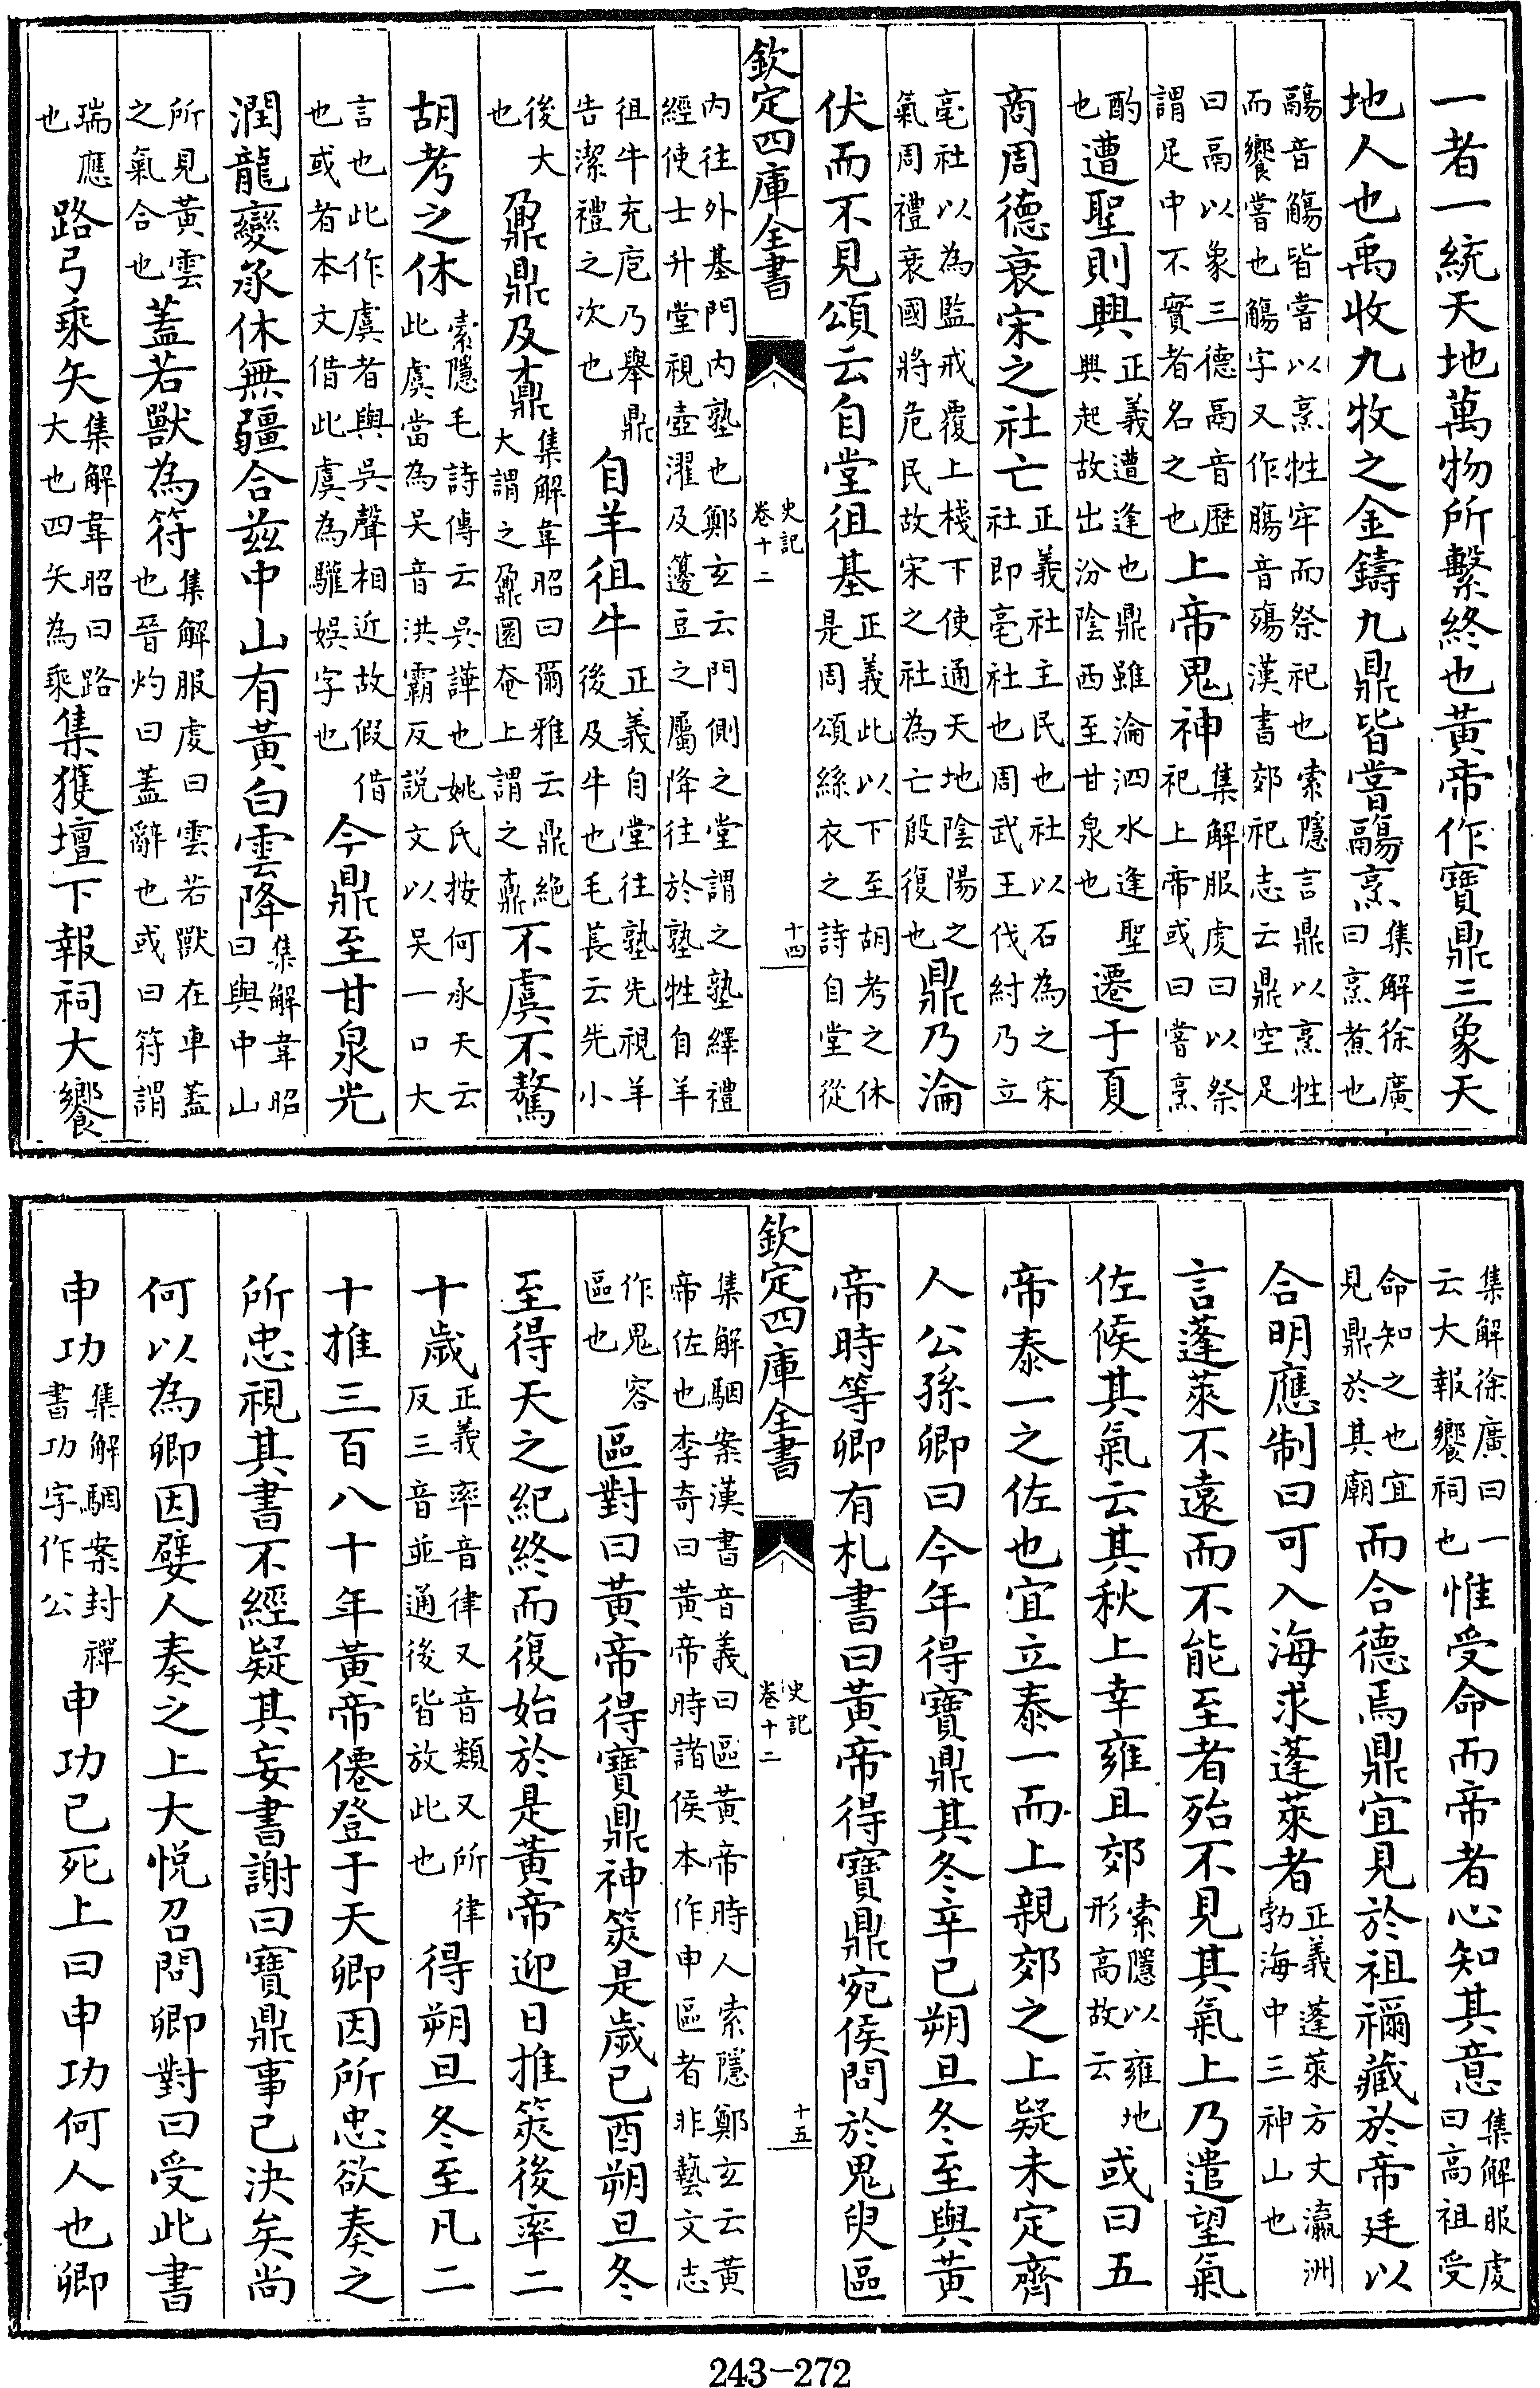 一者一統天地萬物所繫終也黃帝作寶鼎三象天
地人也禹收九牧之金鑄九鼎皆嘗鬺烹集解徐廣曰烹煮也
鬺音觴皆嘗以烹牲牢而祭祀也索隱言鼎以烹牲而饗嘗也觴字又作膓音殤漢書郊祀志云鼎空足
曰鬲以象三德鬲音歷謂足中不實者名之也上帝鬼神集解服虔曰以祭祀上帝或曰嘗烹
酌也遭聖則興正義遭逢也鼎雖淪泗水逢聖興起故出汾陰西至甘泉也遷于夏
商周德衰宋之社亡正義社主民也社以石為之宋社即亳社也周武王伐紂乃立
亳社以為監戒覆上棧下使通天地陰陽之氣周禮衰國將危民故宋之社為亡殷復也鼎乃淪
伏而不見頌云自堂徂基正義此以下至胡考之休是周頌絲衣之詩自堂從
欽定四庫全書
史記卷十二
十四
內往外基門內塾也鄭玄云門側之堂謂之塾繹禮經使士升堂視壺濯及籩豆之屬降往於塾牲自羊
徂牛充庖乃舉鼎告潔禮之次也自羊徂牛正義自堂往塾先視羊後及牛也毛萇云先小
後大也鼐鼎及鼒集解韋昭曰爾雅云鼎絕大謂之鼐圜奄上謂之鼒不虞不驁
胡考之休索隱毛詩傳云吳譁也姚氏按何承天云此虞當為吳音洪霸反説文以吳一口大
言也此作虞者與吳聲相近故假借也或者本文借此虞為驩娛字也今鼎至甘泉光
潤龍變承休無疆合茲中山有黃白雲降集解韋昭曰與中山
所見黃雲之氣合也蓋若獸為符集解服虔曰雲若獸在車蓋也晉灼曰蓋辭也或曰符謂
瑞應也路弓乘矢集解韋昭曰路大也四矢為乘集獲壇下報祠大饗
集解徐廣曰一云大報饗祠也惟受命而帝者心知其意集解服虔曰高祖受
命知之也宜見鼎於其廟而合德焉鼎宜見於祖禰藏於帝廷以
合明應制曰可入海求蓬萊者正義蓬萊方丈瀛洲勃海中三神山也
言蓬萊不遠而不能至者殆不見其氣上乃遣望氣
佐候其氣云其秋上幸雍且郊索隱以雍地形高故云或曰五
帝泰一之佐也宜立泰一而上親郊之上疑未定齊
人公孫卿曰今年得寶鼎其冬辛巳朔旦冬至與黃
帝時等卿有札書曰黃帝得寶鼎宛侯問於鬼臾區
欽定四庫全書
史記卷十二
十五
集解駰案漢書音義曰區黃帝時人索隱鄭玄云黃帝佐也李奇曰黃帝時諸侯本作申區者非藝文志
作鬼容區也區對曰黃帝得寶鼎神筴是歲己酉朔旦冬
至得天之紀終而復始於是黃帝迎日推筴後率二
十歲正義率音律又音類又所律反三音並通後皆放此也得朔旦冬至凡二
十推三百八十年黃帝僊登于天卿因所忠欲奏之
所忠視其書不經疑其妄書謝曰寶鼎事已決矣尚
何以為卿因嬖人奏之上大悅召問卿對曰受此書
申功集解駰案封禪書功字作公申功已死上曰申功何人也卿
243-272